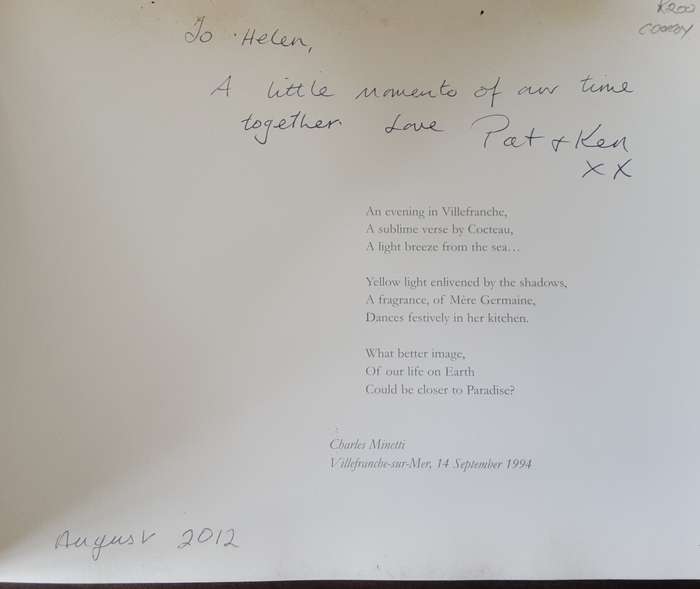 To Helen,
A little momento of our time
together. Love Pat + Ken
x x
An evening in Villefranche,
A sublime verse by Cocteau,
A light breeze from the sea…
Yellow light enlivened by the shadows,
A fragrance, of Mère Germaine,
Dances festively in her kitchen.
What better image,
Of our life on Earth
Could be closer to Paradise?
Charles Minetti
Villefranche-sur-Mer, 14 September 1994
August 2012